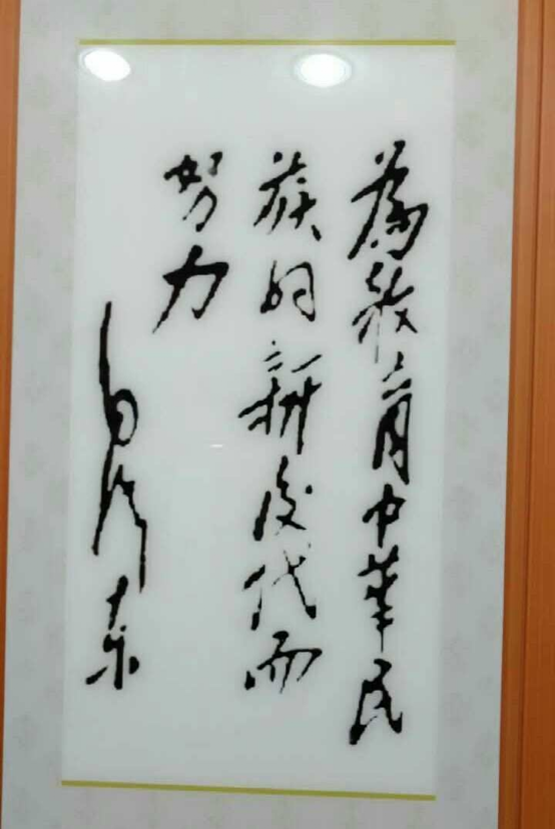 為教育中華民
族的新後代而
努力
毛澤东